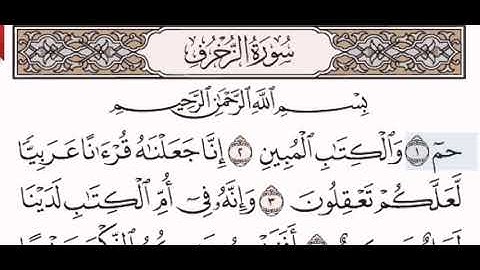 سُورَةُ الزُّخْرُفِ
بِسْمِ اللَّهِ الرَّحْمَٰنِ الرَّحِيمِ
حمٓ ١ وَالْكِتَابِ الْمُبِينِ ٢ إِنَّا جَعَلْنَاهُ قُرْءَانًا عَرَبِيًّا
لَّعَلَّكُمْ تَعْقِلُونَ ٣ وَإِنَّهُ فِىٓ أُمِّ الْكِتَابِ لَدَيْنَا